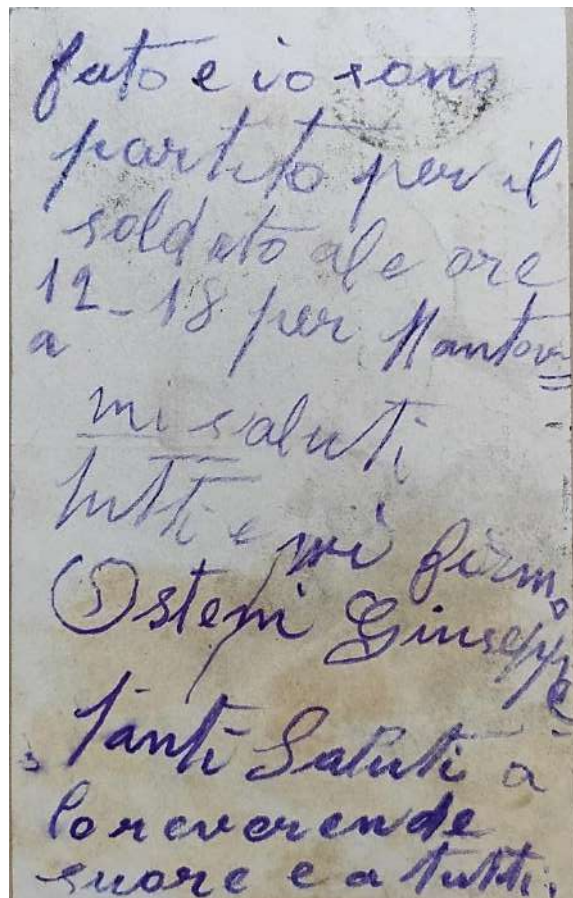 fato e io sono
partito per il
soldato ale ore
12-18 per Mantov
a
mi saluti
tutti e mi firmo
Osteni Giuseppe
Tanti Saluti a
lo reverende
suore e a tutti.